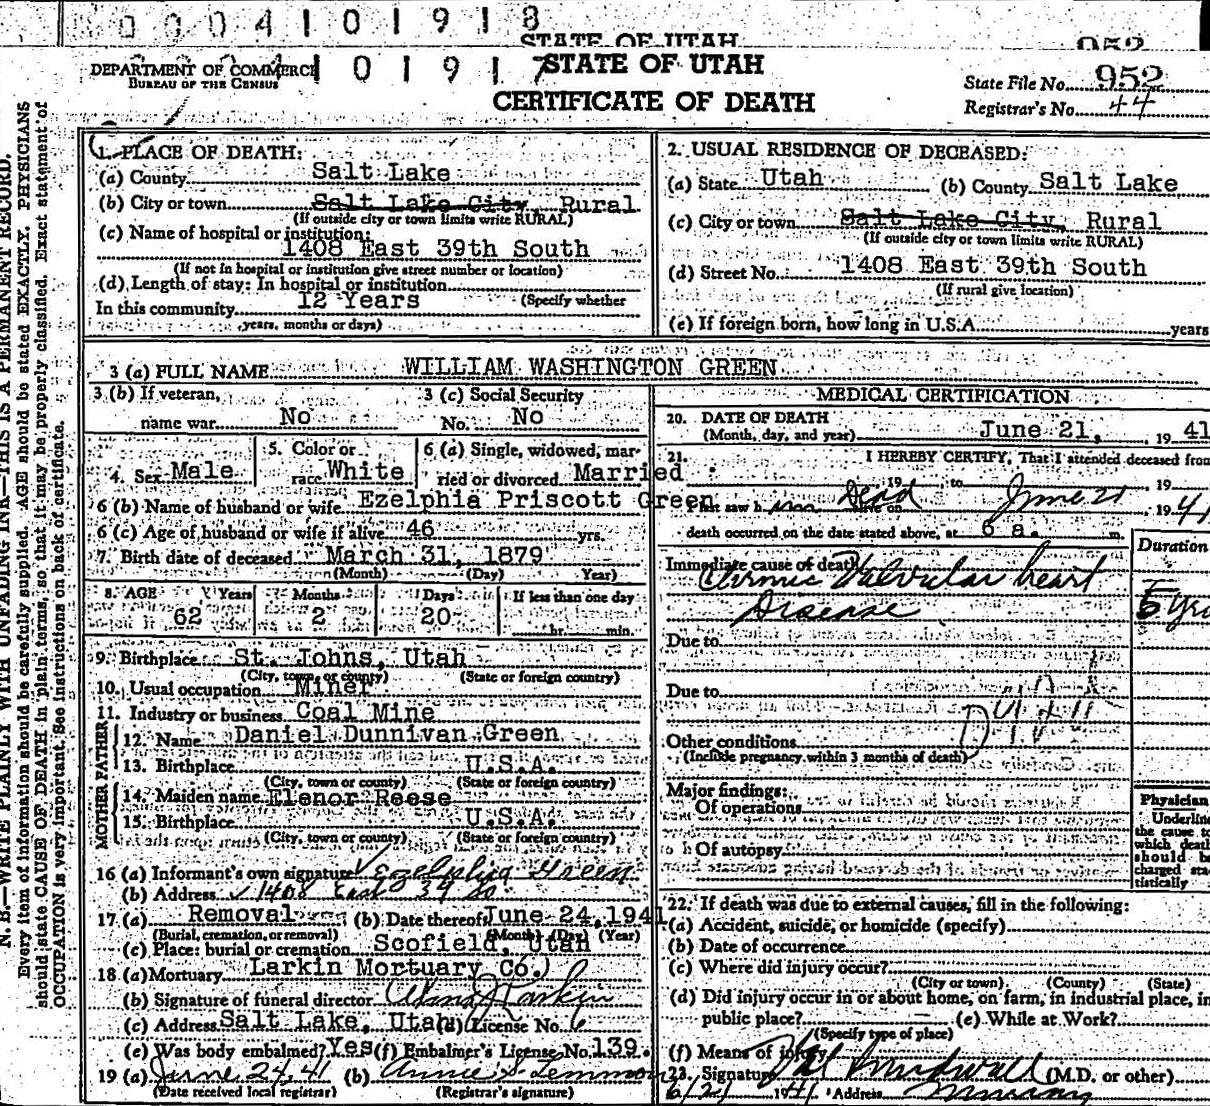 0004101918
STATE OF UTAH
952
DEPARTMENT OF COMMERCE
BUREAU OF THE CENSUS
101917
STATE OF UTAH
CERTIFICATE OF DEATH
State File No. 952
Registrar's No. 44
N. B.—WRITE PLAINLY WITH UNFADING INK—THIS IS A PERMANENT RECORD.
Every item of information should be carefully supplied. AGE should be stated EXACTLY. PHYSICIANS
should state CAUSE OF DEATH in plain terms, so that it may be properly classified. Exact statement of
OCCUPATION is very important. See instructions on back of certificate.
1. PLACE OF DEATH:
(a) County Salt Lake
(b) City or town Salt Lake City Rural
(If outside city or town limits write RURAL)
(c) Name of hospital or institution:
1408 East 39th South
(If not in hospital or institution give street number or location)
(d) Length of stay: In hospital or institution
In this community 12 Years (Specify whether
years, months or days)
2. USUAL RESIDENCE OF DECEASED:
(a) State Utah (b) County Salt Lake
(c) City or town Salt Lake City, Rural
(If outside city or town limits write RURAL)
(d) Street No. 1408 East 39th South
(If rural give location)
(e) If foreign born, how long in U.S.A. years
3 (a) FULL NAME WILLIAM WASHINGTON GREEN
3 (b) If veteran,
name war No
3 (c) Social Security
No. No
4. Sex Male
5. Color or
race White
6 (a) Single, widowed, mar-
ried or divorced Married
6 (b) Name of husband or wife Ezelphia Priscott Green
6 (c) Age of husband or wife if alive 46 yrs.
7. Birth date of deceased March 31, 1879
(Month) (Day) Year)
8. AGE Years Months Days If less than one day
62 2 20 hr. min.
9. Birthplace St. Johns, Utah
(City, town, or county) (State or foreign country)
10. Usual occupation Miner
11. Industry or business Coal Mine
FATHER
12. Name Daniel Dunnivan Green
13. Birthplace U.S.A.
(City, town or county) (State or foreign country)
MOTHER
14. Maiden name Elenor Reese
15. Birthplace U.S.A.
(City, town or county) (State or foreign country)
16 (a) Informant's own signature Ezelphia Green
(b) Address 1408 East 39 So.
17. (a) Removal (b) Date thereof June 24, 1941
(Burial, cremation, or removal) (Month) (Day) (Year)
(c) Place: burial or cremation Scofield, Utah
18 (a) Mortuary Larkin Mortuary Co.
(b) Signature of funeral director Larkin
(c) Address Salt Lake, Utah (d) License No. 6
(e) Was body embalmed? Yes (f) Embalmer's License No. 139.
19 (a) June 24, 41 (b) Annie S. Lemmon
(Date received local registrar) (Registrar's signature)
MEDICAL CERTIFICATION
20. DATE OF DEATH
(Month, day, and year) June 21, 19 41
21. I HEREBY CERTIFY, That I attended deceased from
19 to 19
I last saw him Dead alive on June 21 19 41
death occurred on the date stated above, at 6 a. m.
Duration
Immediate cause of death Chronic Valvular heart
Disease 5 yrs
Due to
Due to
Other conditions
(Include pregnancy within 3 months of death)
Major findings:
Of operations
Of autopsy
Physician
Underline
the cause to
which death
should be
charged sta-
tistically
22. If death was due to external causes, fill in the following:
(a) Accident, suicide, or homicide (specify)
(b) Date of occurrence
(c) Where did injury occur?
(City or town) (County) (State)
(d) Did injury occur in or about home, on farm, in industrial place, in
public place? (e) While at Work?
(Specify type of place)
(f) Means of injury
23. Signature (M.D. or other)
1941 Address Murray